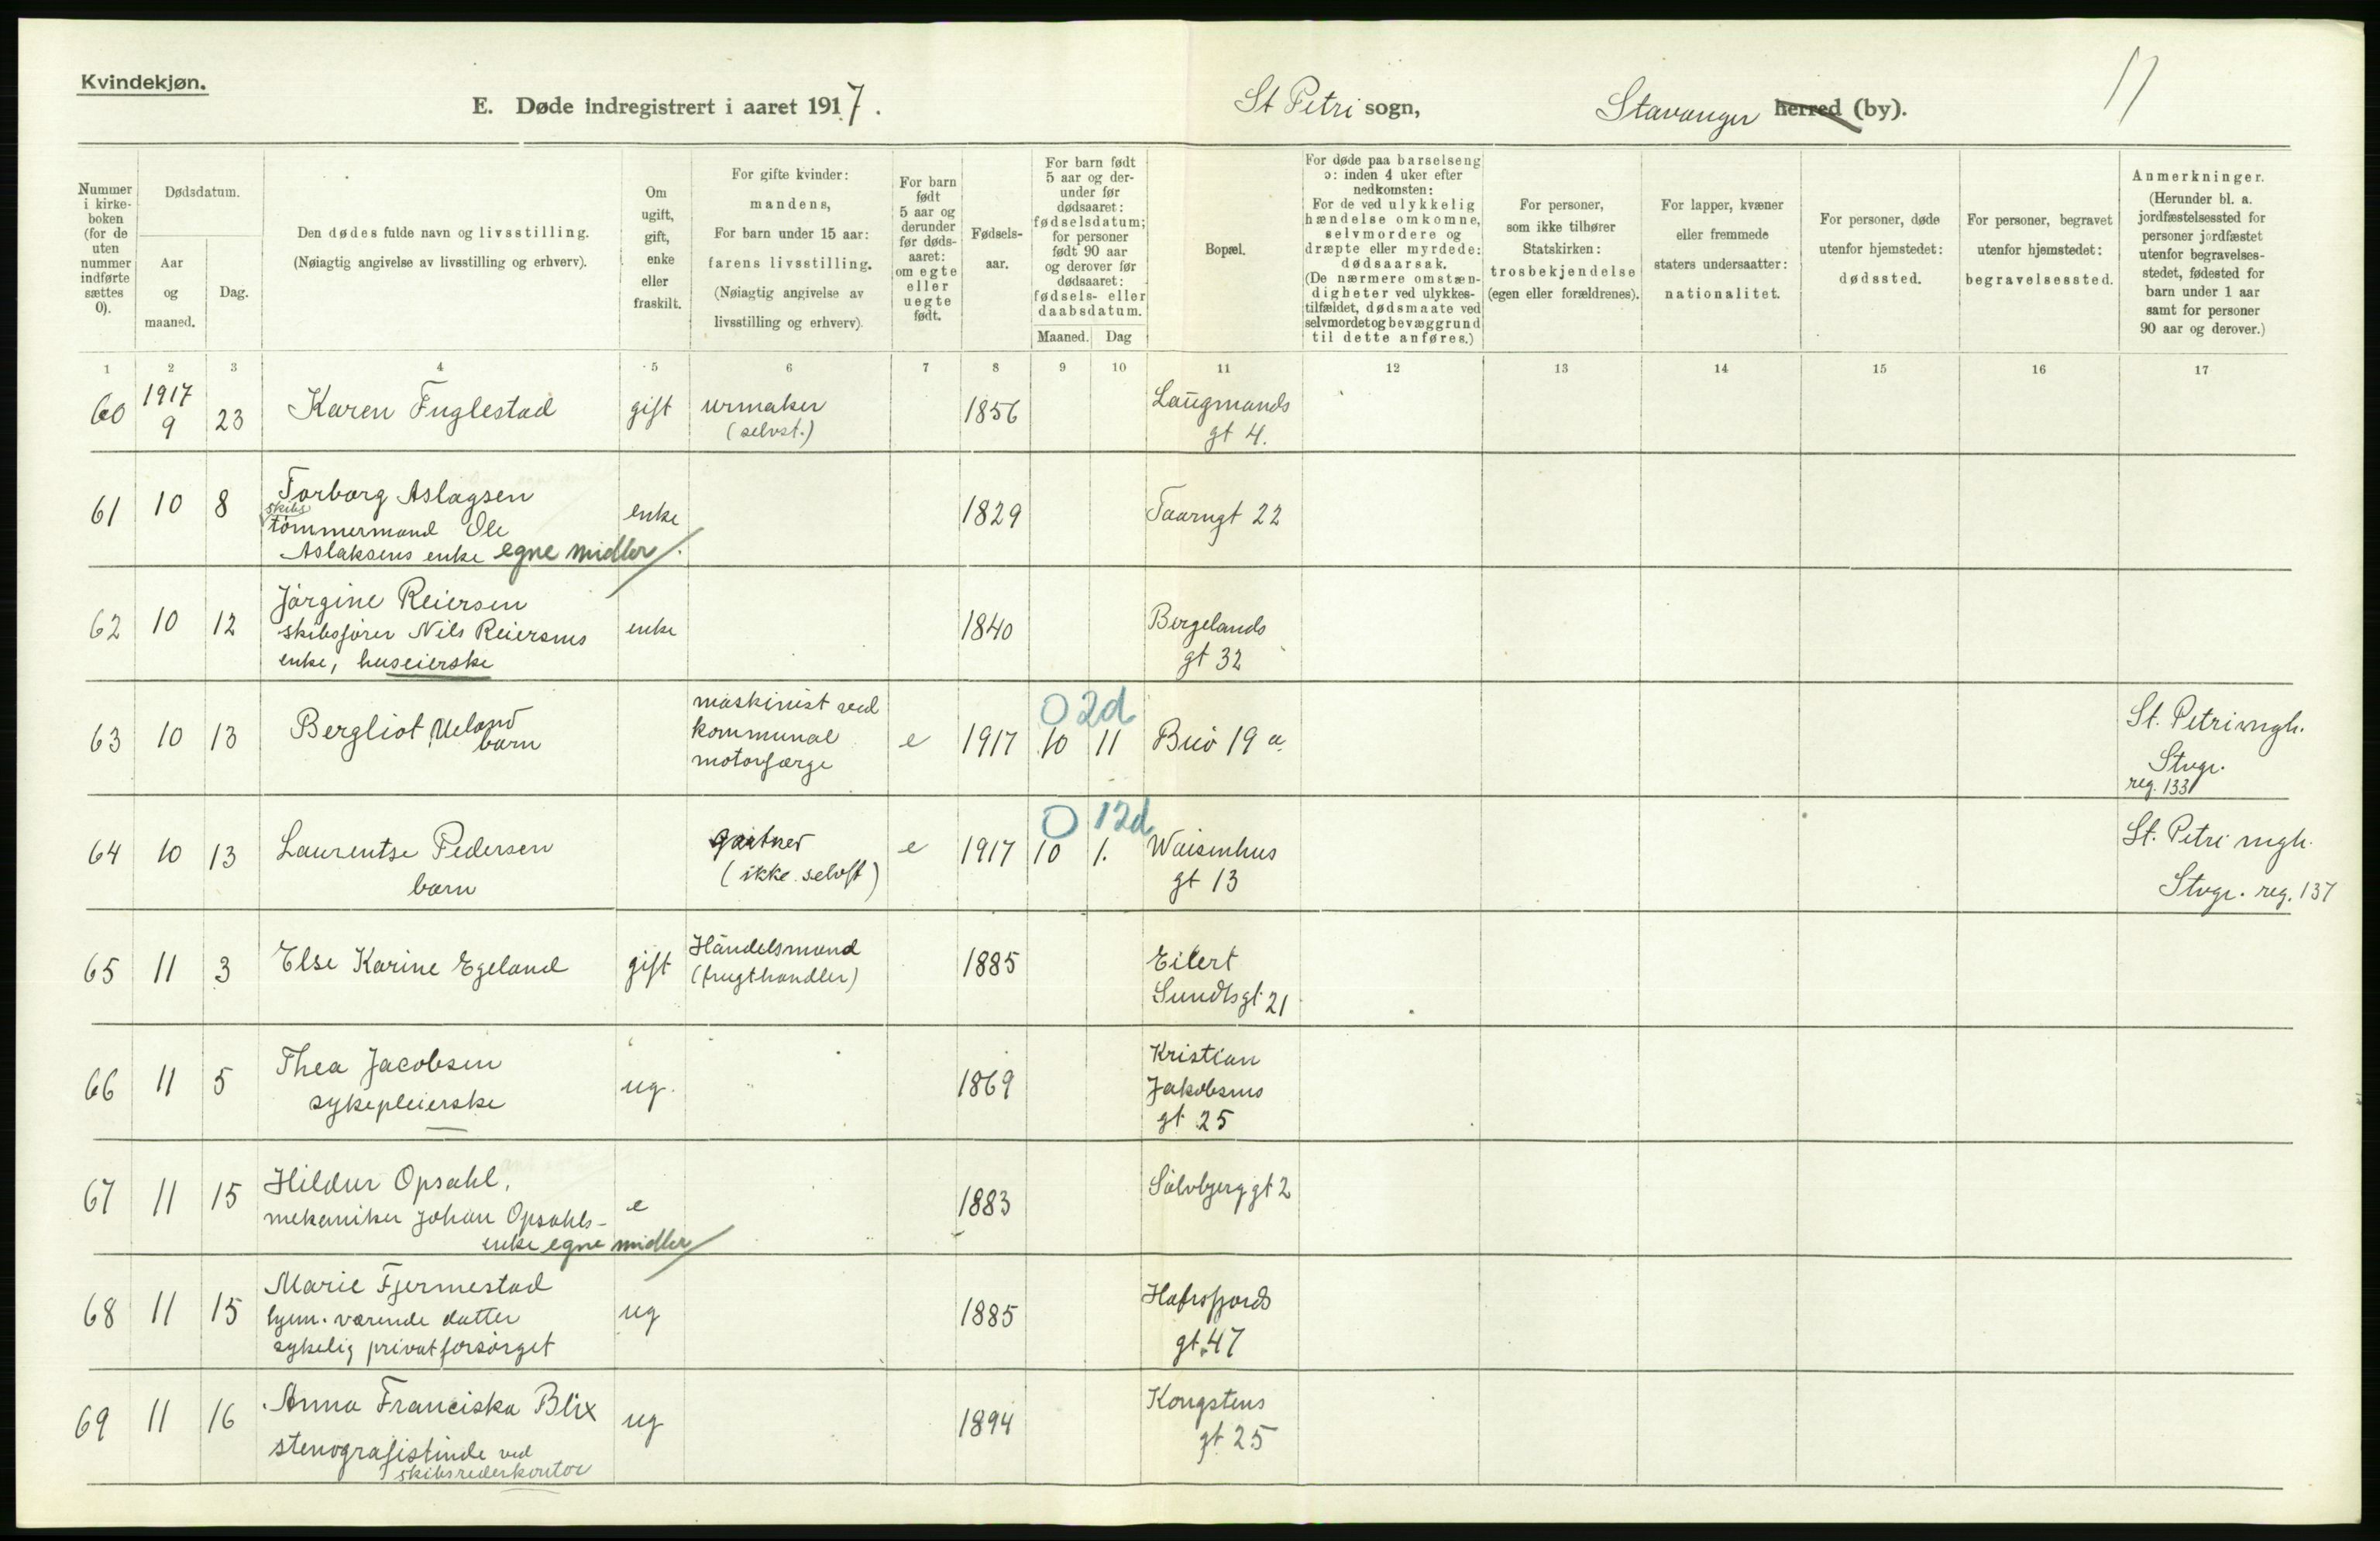 Kvindekjøn.
E. Døde indregistrert i aaret 1917.
St Petri sogn, Stavanger herred (by).
11
Nummer i kirkeboken (for de uten nummer indførte sættes 0).
Dødsdatum.
Aar og maaned.
Dag.
Den dødes fulde navn og livsstilling.
(Nøiagtig angivelse av livsstilling og erhverv).
Om ugift, gift, enke eller fraskilt.
For gifte kvinder: mandens,
For barn under 15 aar: farens livsstilling.
(Nøiagtig angivelse av livsstilling og erhverv).
For barn født 5 aar og derunder før dødsaaret: om egte eller uegte født.
Fødselsaar.
For barn født 5 aar og derunder før dødsaaret: fødselsdatum; for personer født 90 aar og derover før dødsaaret: fødsels- eller daabsdatum.
Maaned. Dag
Bopæl.
For døde paa barselseng ɔ: inden 4 uker efter nedkomsten:
For de ved ulykkelig hændelse omkomne, selvmordere og dræpte eller myrdede: dødsaarsak.
(De nærmere omstændigheter ved ulykkestilfældet, dødsmaate ved selvmordet og bevæggrund til dette anføres.)
For personer, som ikke tilhører Statskirken: trosbekjendelse (egen eller forældrenes).
For lapper, kvæner eller fremmede staters undersaatter: nationalitet.
For personer, døde utenfor hjemstedet: dødssted.
For personer, begravet utenfor hjemstedet: begravelsessted.
Anmerkninger.
(Herunder bl. a. jordfæstelsessted for personer jordfæstet utenfor begravelsesstedet, fødested for barn under 1 aar samt for personer 90 aar og derover.)
1 2 3 4 5 6 7 8 9 10 11 12 13 14 15 16 17
60 1917 9 23 Karen Fuglestad gift urmaker (selvst.) 1856 Laugmands gt 4.
61 10 8 Torborg Aslagsen skibstømmermand Ole Aslaksens enke egne midler enke 1829 Taarngt 22
62 10 12 Jørgine Reiersen skibsfører Nils Reiersens enke, huseierske enke 1840 Bergelands gt 32
63 10 13 Bergliot Ueland barn maskinist ved kommunal motorfærge e 1917 10 11 0 2d Buø 19 a. St. Petri mgh. Stvgr. reg. 133
64 10 13 Laurentse Pedersen barn gartner (ikke selvst) e 1917 10 1. 0 12d Waisenhus gt 13 St. Petri mgh. Stvgr. reg. 137
65 11 3 Else Karine Egeland gift Handelsmand (frugthandler) 1885 Eilert Sundtsgt 21
66 11 5 Thea Jacobsen sykepleierske ug. 1869 Kristian Jakobsens gt 25
67 11 15 Hildur Opsahl, mekaniker Johan Opsahls- enke egne midler e 1883 Sølvbjerggt 2
68 11 15 Marie Fjermestad hjem. værende datter sykelig privat forsørget ug 1885 Hafrsfjords gt. 47
69 11 16 Anna Franciska Blix stenografistinde ved skibsrederkontor ug 1894 Kongstens gt 25